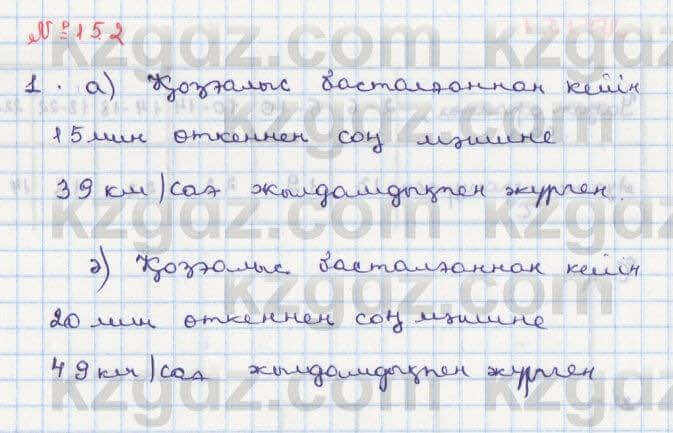 №152
1. а) Қозғалыс басталғаннан кейін
15 мин өткеннен соң мәшине
39 км/сағ жылдамдықпен жүрген.
ә) Қозғалыс басталғаннан кейін
20 мин өткеннен соң мәшине
49 км/сағ жылдамдықпен жүрген
kzgdz.com
kzgdz.com
kzgdz.com
kzgdz.com
kzgdz.com
kzgdz.com